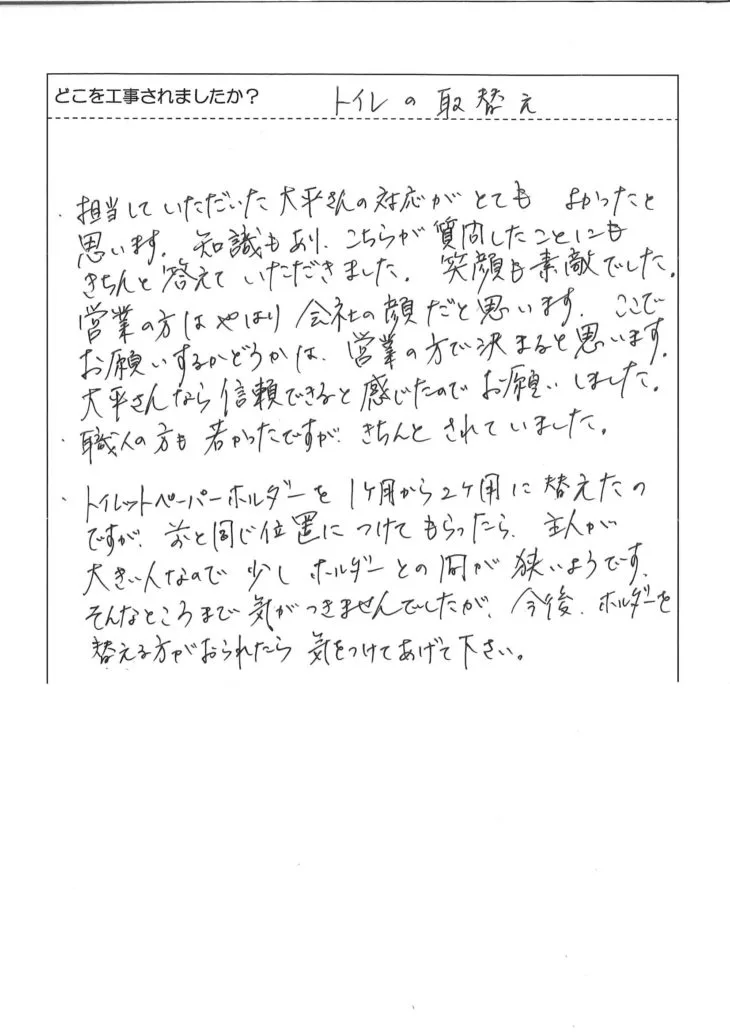 どこを工事されましたか？ トイレの取替え
・担当していただいた大平さんの対応がとても よかったと
思います。知識もあり、こちらが質問したことにも
きちんと答えていただきました。笑顔も素敵でした。
営業の方はやはり会社の顔だと思います。ここで
お願いするかどうかは、営業の方で決まると思います。
大平さんなら信頼できると感じたのでお願いしました。
・職人の方も若かったですが、きちんとされていました。
・トイレットペーパーホルダーを1ケ用から2ケ用に替えたの
ですが、前と同じ位置につけてもらったら、主人が
大きい人なので少しホルダーとの間が狭いようです。
そんなところまで気がつきませんでしたが、今後、ホルダーを
替える方がおられたら気をつけてあげて下さい。